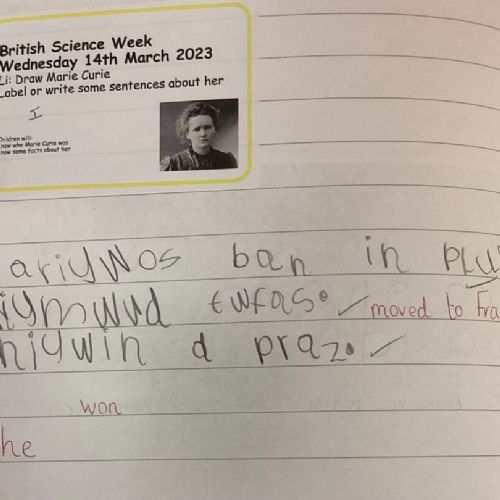 British Science Week
Wednesday 14th March 2023
Li: Draw Marie Curie
Label or write some sentences about her
I
Children will-
know who Marie Curie was
know some facts about her
ariywos ban in plu
iymwvd twfas. ✓ moved to Fra
hiywin d praz. ✓
won
he